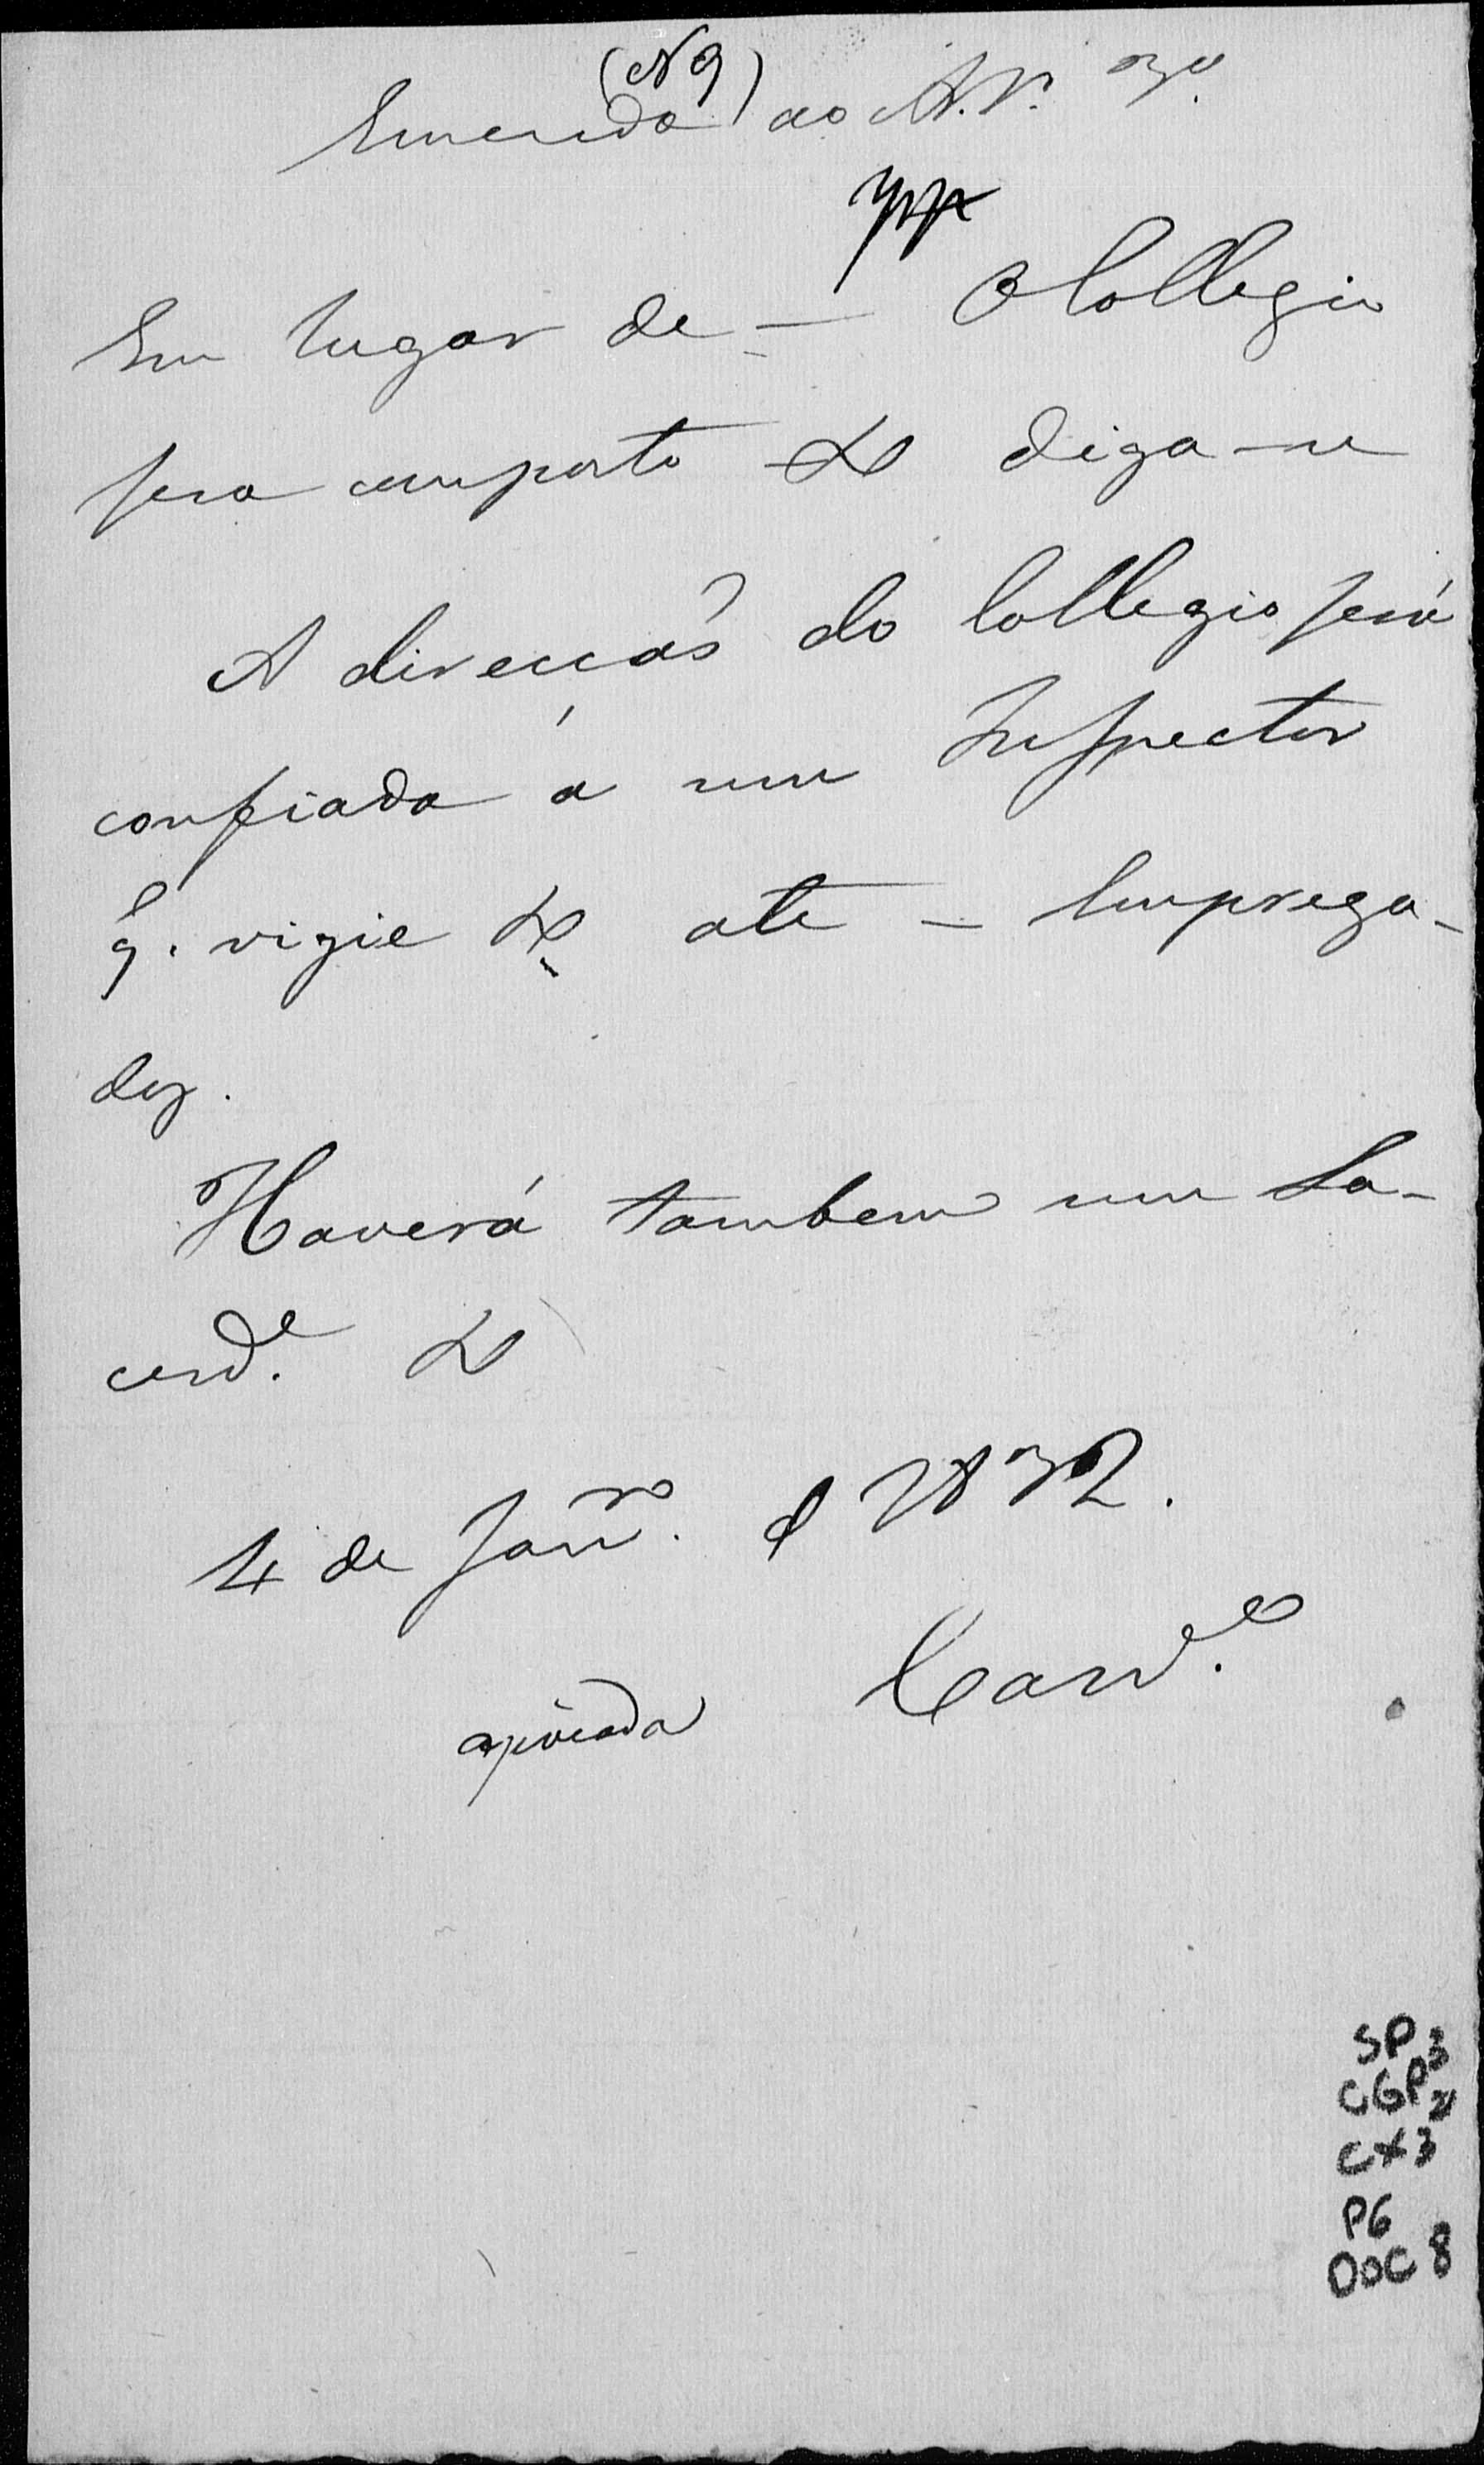 (N 9)
Emenda ao Art. 3º
Em lugar de — O Collegio
sera composto &ª diga-se
A direccaõ do Collegio será
confiada á um Inspector
q. vigie &ª ate — Emprega-
dos.
Haverá tambem um Sa-
cerd.e &ª
4 de Janr.o d 1832.
Card.o
apoiada
SP
CGP3
CX3
P6
DOC 8